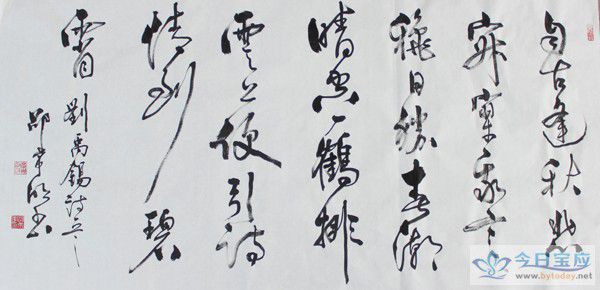 自古逢秋悲
寂寥我言
穐日勝春潮
晴空一鶴排
雲上便引詩
情到碧
霄
劉禹錫詩之一
常書
今日宝应
www.bytoday.net